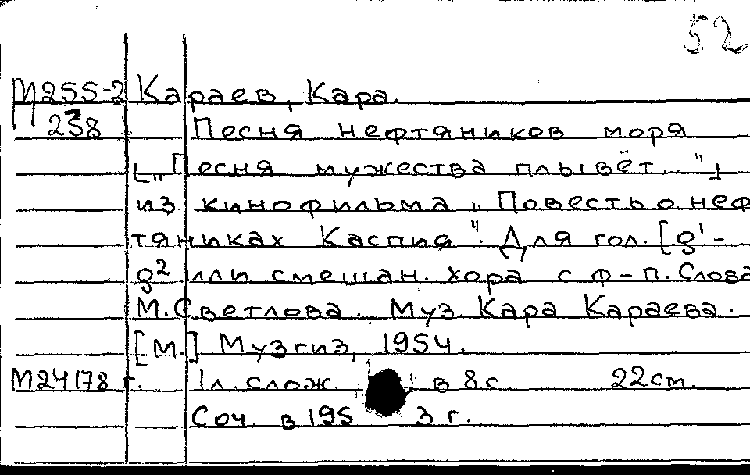 52
М255-2 Караев, Кара.
238 Песня нефтяников моря
[„Песня мужества плывёт..."]
из кинофильма „Повесть о неф
тяниках Каспия". Для гол. [g¹-
g² или смешан. хора с ф-п. Слова
М. Светлова. Муз Кара Караева.
[М.] Музгиз, 1954.
М24178 г. 1л. слож. в 8 с. 22 см.
Соч. в 1953 г.